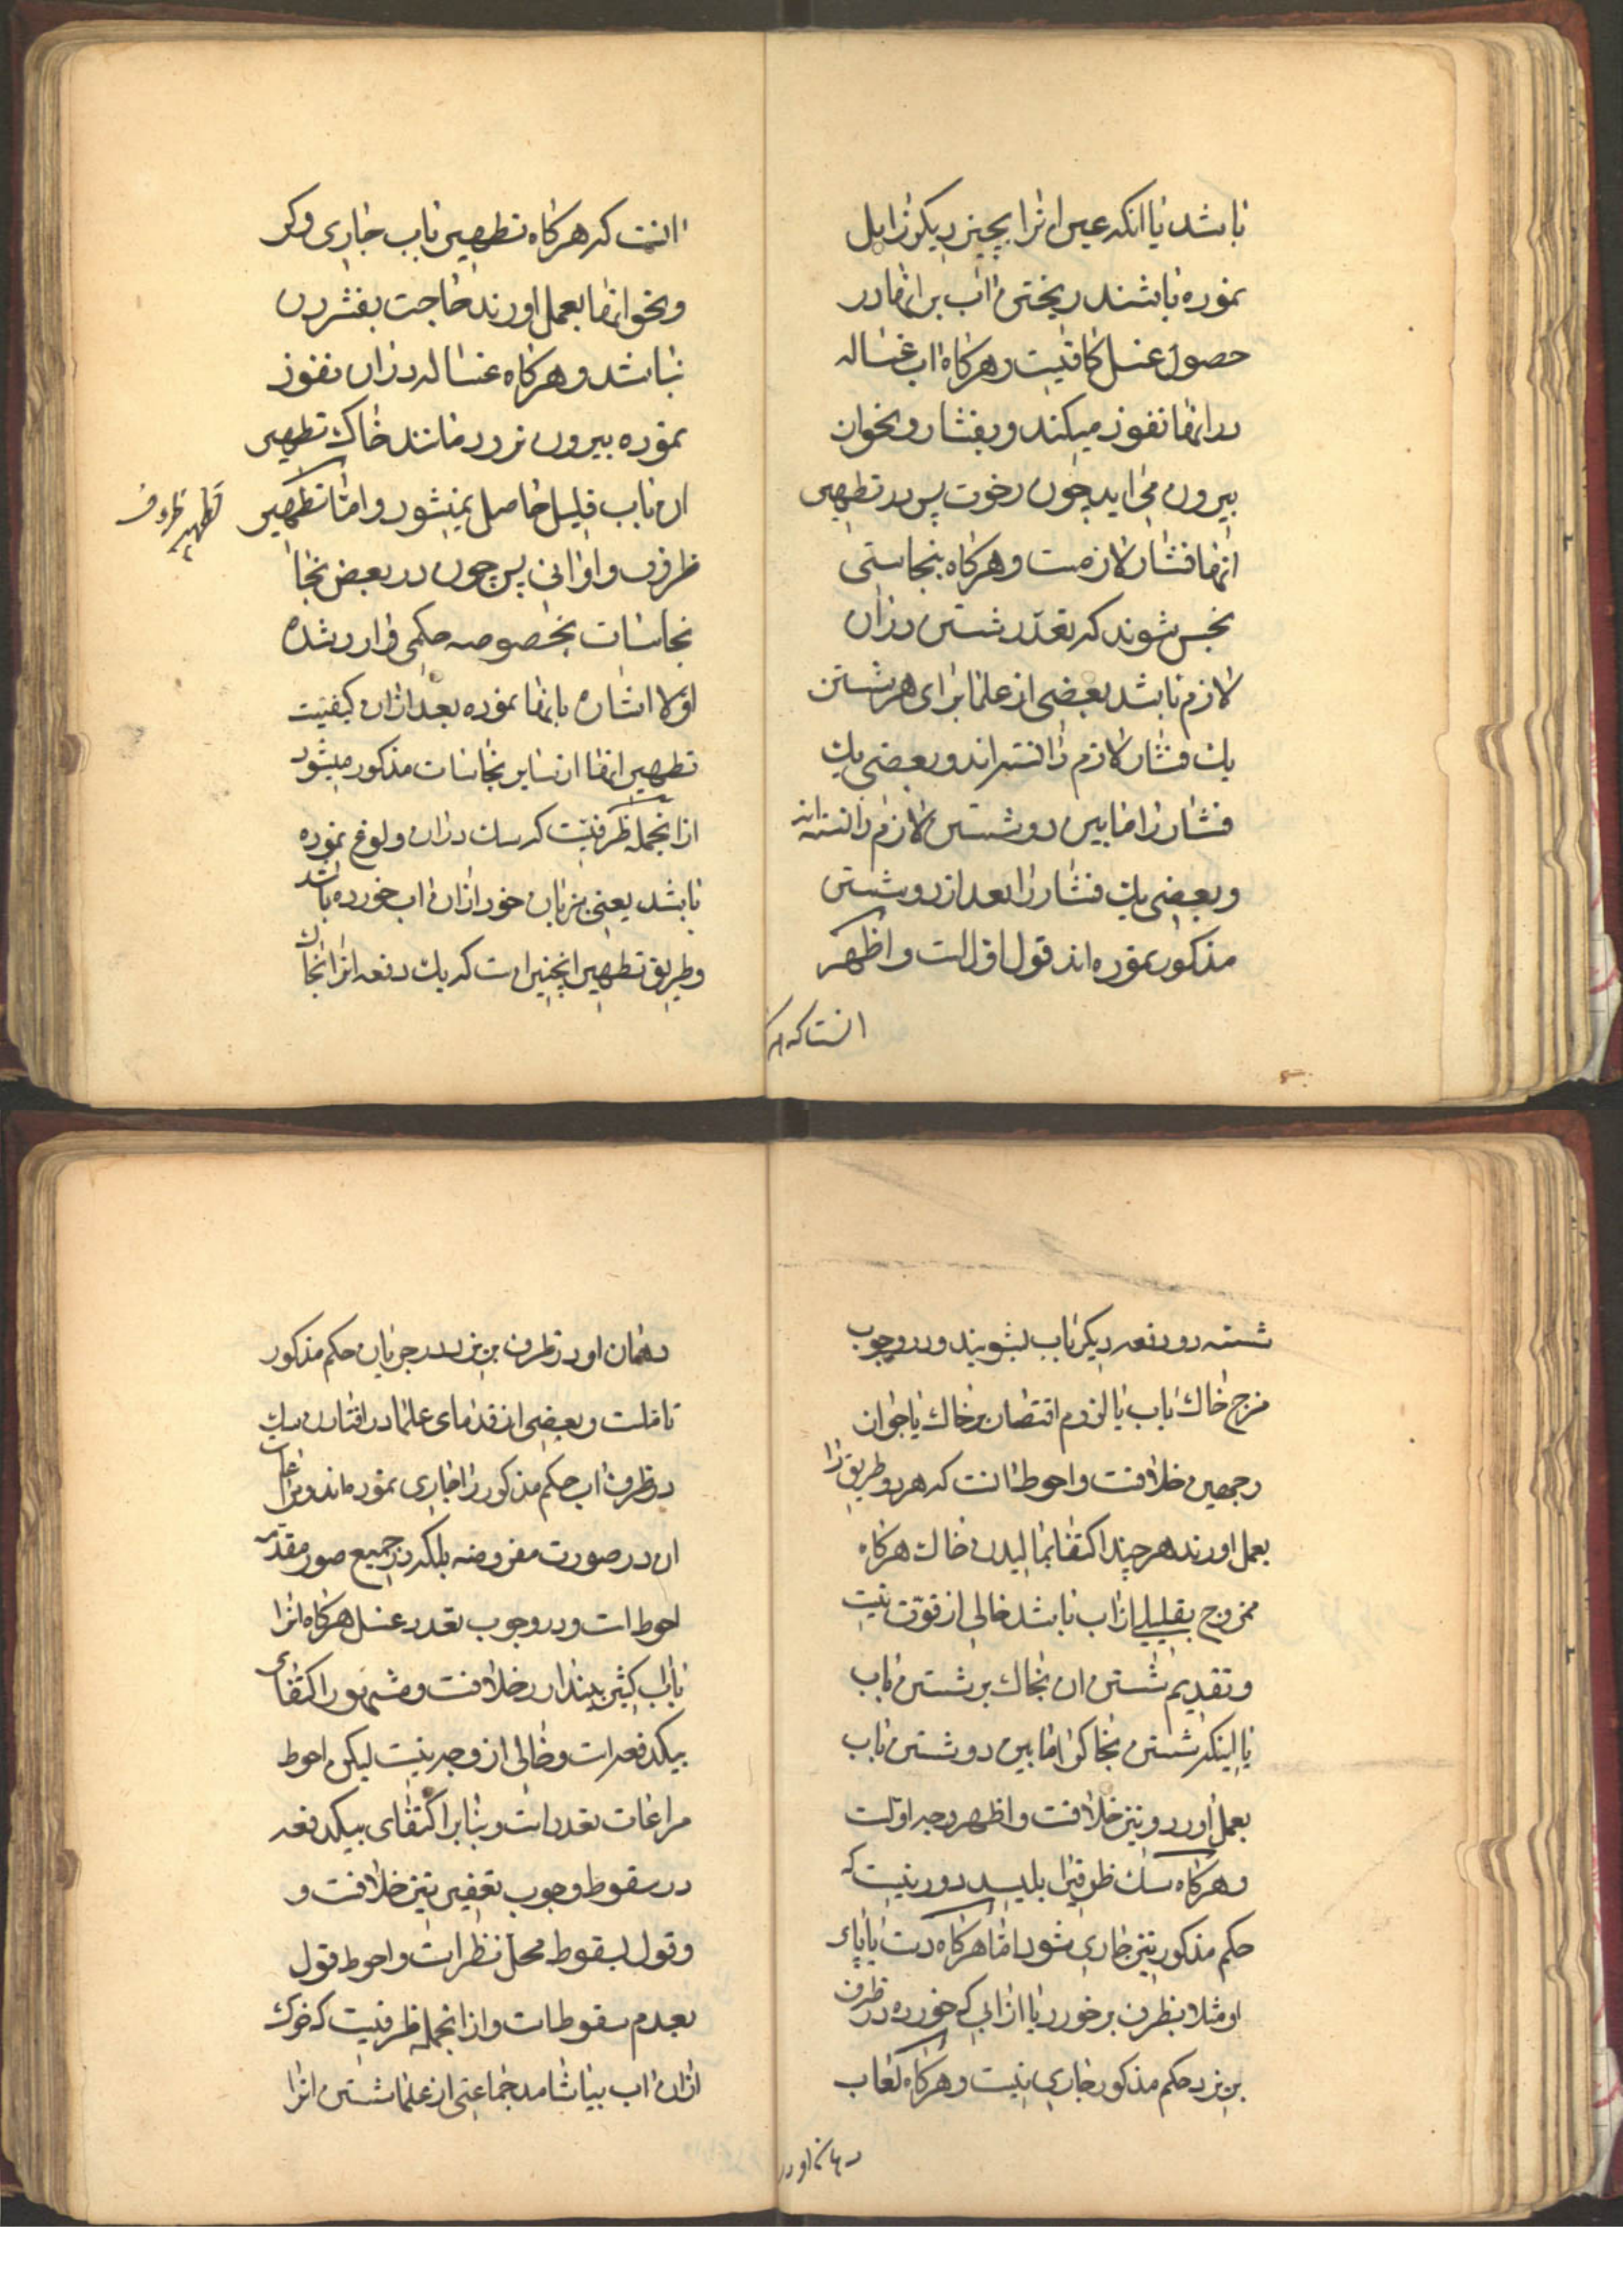 باشد یا انکه عین اثرا بچیز دیکر زایل
نموده باشند ریختن اب بر انها در
حصول غسل کافیست و هرکاه اب غساله
در انها نفوز میکند و بفشار و نحوان
بیرون می اید چون رخوت پس در تطهیر
انها فشار لازمست و هرکاه بنجاستی
نجس شوند که تعدّد شستن در ان
لازم باشد بعضی از علما برای هر شستن
یك فشار لازم دانسته اند و بعضی یك
فشار را مابین دو شستن لازم دانسته اند
و بعضی یك فشار را بعد از دو شستن
مذکور نموده اند قول اول است و اظهر
انست که هر
انست که هرکاه تطهیر باب جاری و کر
و نحو انها بعمل اورند حاجت بفشردن
نباشد و هرکاه غساله در ان نفوز
نموده بیرون نرود مانند خاك تطهیر
ان باب قلیل حاصل نمیشود و امّا تطهیر
تطهیر ظروف
ظروف و اوانی پس چون در بعض نجا
نجاسات بخصوصه حکمی وارد شده
اوّلا اشاره بانها نموده بعد ازان کیفیّت
تطهیر انها از سایر نجاسات مذکور میشود
از انجمله ظرفیست که سك در ان ولوغ نموده
باشد یعنی بزبان خود ازان اب خورده باشد
و طریق تطهیر انچنین است که یك دفعه انرا بخاك
شسته دو دفعه دیکر باب بشویند و در وجوب
مزج خاك باب یا لزوم اقتصار بر خاك یا جواز
هر دو خلافست و احوط انست که هر دو طریق را
بعمل اورند هر چند اکتفا بمالیدن خاك هرکاه
ممزوج بقلیلی از اب باشد خالی از قوّت نیست
و تقدیم شستن ان بخاك بر شستن باب
یا اینکه شستن بخاك را مابین دو شستن باب
بعمل اورد و نیز خلافست و اظهر وجه اوّلست
و هرکاه سك ظرفیرا بلیسد دور نیست که
حکم مذکور نیز جاری شود امّا هرکاه دست یا پای
او مثلا بظرف برخورد یا از ابی که خورده در ظرف
بریزد حکم مذکور جاری نیست و هرکاه لعاب
دهان او در
دهان او در ظرف بریزد در جریان حکم مذکور
تاملست و بعضی از قدمای علما در افتادن سك
در ظرف اب حکم مذکور را جاری نموده اند و مراعات
ان در صورت مفروضه بلکه در جمیع صور مقدّمه
احوط است و در وجوب تعدد غسل هرکاه انرا
باب کثیر بیندازد خلافست و مشهور اکتفای
بیکدفعه است و خالی از وجه نیست لیکن احوط
مراعات تعدد است و بنا بر اکتفای بیکدفعه
در سقوط وجوب تعفیر نیز خلافست و
و قول بسقوط محلّ نظر است و احوط قول
بعدم سقوط است و از انجمله ظرفیست که خوك
ازان اب بیاشامد جماعتی از علما شستن انرا